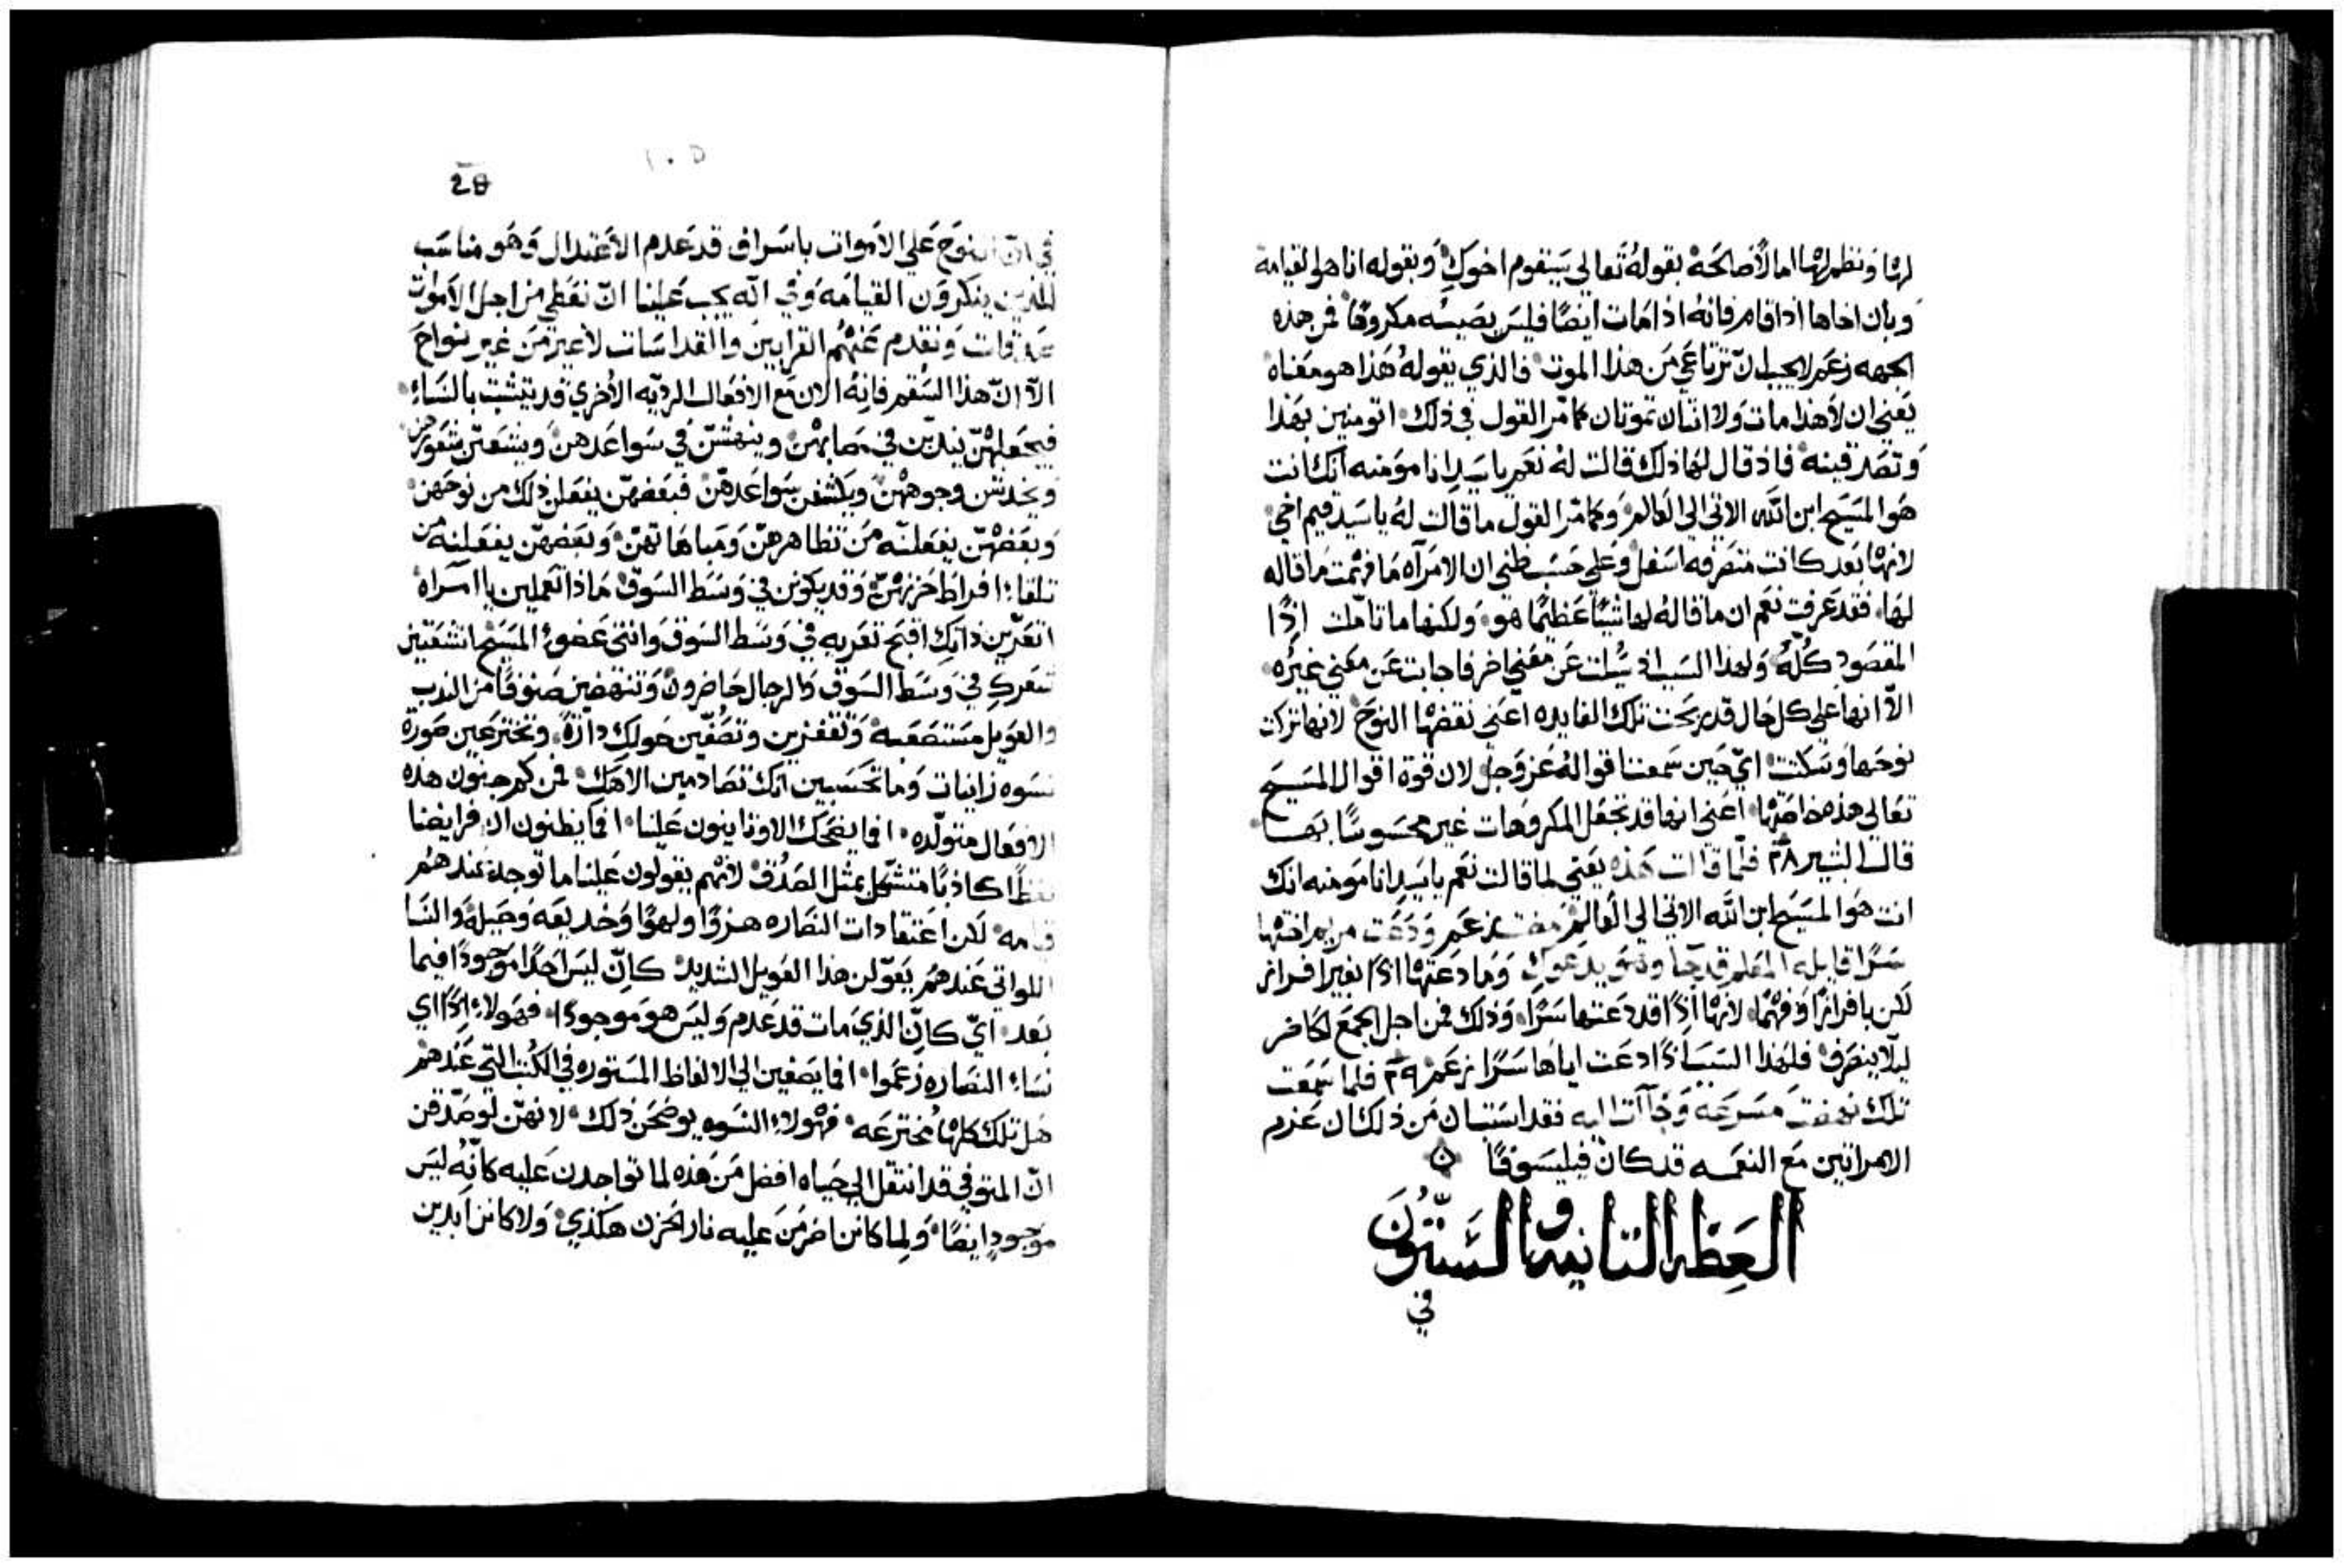 لرثا ونظم لها اما لأضالحة بقوله تعالى سيقوم اخوك وبقوله انا هو القيامة
وبان اخاها اذا قام فانه اذا مات ايضًا فليس يصيبه مكروهًا فمن هذه
الجهه زعم لا يجب ان ترتاعي من هذا الموت فالذي يقوله هذا هو معناه
يعني ان لا هذا مات ولا انتان تموتان كما مر القول في ذلك اتومنين بهذا
وتصدقينه فاذ قال لها ذلك قالت له نعم يا سيد انا مومنه انك انت
هو المسيح ابن الله الاتي الى العالم وكما مر القول ما قالت له يا سيد قيم اخي
لانها بعد كانت متصرفه اسفل وعلى حسب ظني ان الامرآه ما فهمت ما قاله
لها فقد عرفت نعم ان ما قاله لها شيئًا عظيمًا هو ولكنها ما تاملت اذًا
المقصود كله ولهذا السبب اذ سُئلت عن معني اخر فاجابت عن معني غيره
الا انها على كل حال قد ربحت تلك الفايده اعني نقضها النوح لانها تركت
نوحها وسكنت اي حين سمعت اقواله عز وجل لان قوة اقوال المسيح
تعالى هذه خاصتها اعني انها قد تجعل المكروهات غير محسوسًا بها
قال البشير ٢٨ فلما قالت هذه يعني لما قالت نعم يا سيد انا مومنه انك
انت هو المسيح ابن الله الاتي الى العالم مضت زعم ودعت مريم اختها
سرًا قايله المعلم قد جا وهو يدعوك وما دعتها اذًا بغير افراز
لكن بافرازًا وفهمًا لانها اذًا قد دعتها سرًا وذلك فمن اجل الجمع الحاضر
ليلا ينصرف فلهذا السبب اذًا دعت اياها سرًا زعم ٢٩ فلما سمعت
تلك نهضت مسرعه وجآات اليه فقد استبان من ذلك ان عزم
الامراتين مع النعمه قد كان فيليسوفًا
العظه الثانيه والستون
في
28
١٠٥
في ان النوح على الاموات باسراف قد عدم الاعتدال وهو مناسب
للذين ينكرون القيامه وفي انه يجب علينا ان نعطي من اجل الاموات
صدقات ونقدم عنهم القرابين والقداسات لا غير من غير نواح
الا ان هذا السقم فانه الان مع الافعال الرديه الاخري قد يتشبث بالنساء
فيجعلهن يندبن في مصابهن وينهشن في سواعدهن وينتعتن شعورهن
ويخدشن وجوههن ويكشفن سواعدهن فبعضهن يفعلن ذلك من نوحهن
وبعضهن يفعلنه من تظاهرهن ومباهاتهن وبعضهن يفعلنه من
تلقاء افراط حزنهن وقد يكون في وسط السوق ماذا تعملين يا امراه
اتعرين ذاتك اقبح تعريه في وسط السوق وانتي عضو المسيح اتنتفين
شعرك في وسط السوق والرجال حاضرون وتنتهضين صنوفًا من الندب
والعويل مستصعبه وتقفزين وتصُفين حولك دائرةً وتخترعين صورة
نسوه زانيات وما تحسبين انك تصادمين الاهك فمن كم جنون هذه
الافعال متولده افما يضحك الاوثاينون علينا افما يظنون ان فرايضنا
لفظًا كاذبًا متشكل بمثل الصدف لانهم يقولون علينا ما توجد عندهم
قيامه لكن اعتقادات النصاره هزوًا ولهوًا وخديعه وحيلة والنسا
اللواتي عندهم يعولن هذا العويل الشديد كان ليس احدًا موجودًا فيما
بعد اي كان الذي مات قد عدم وليس هو موجودًا فهولاء اذًا اي
نساء النصاره زعموا افما يصغين الي الالفاظ المستوره في الكتب التي عندهم
هل تلك كلها مخترعه فهولاء النسوه يوضحن ذلك لانهن لو صدقن
ان المتوفي قد انتقل الي حياه افضل من هذه لما تواجدن عليه كانه ليس
موجودٍ ايضًا ولما كانن اضرمن عليه نار الحزن هكذي ولا كانن ابدين